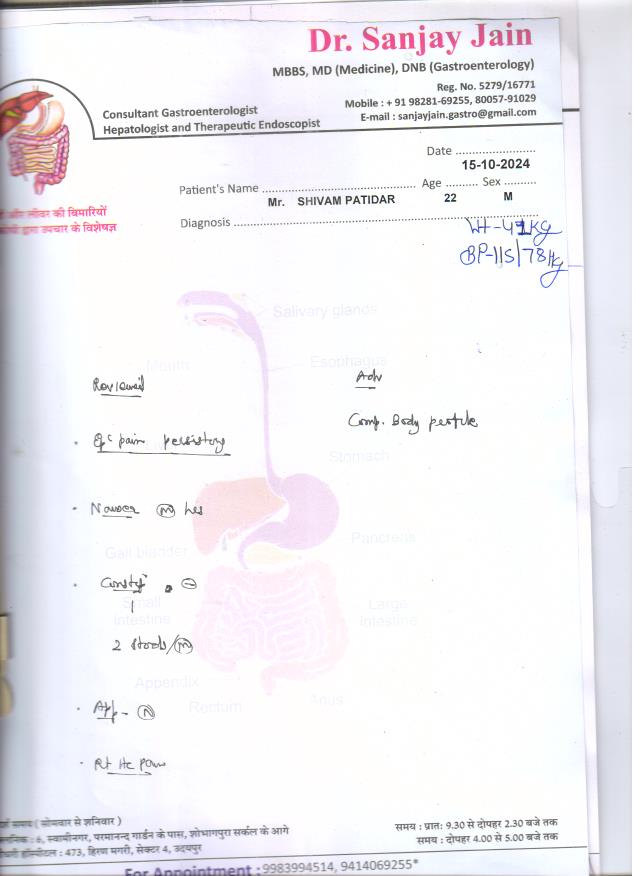 Dr. Sanjay Jain
MBBS, MD (Medicine), DNB (Gastroenterology)
Reg. No. 5279/16771
Mobile : + 91 98281-69255, 80057-91029
E-mail : sanjayjain.gastro@gmail.com
Consultant Gastroenterologist
Hepatologist and Therapeutic Endoscopist
और लीवर की बिमारियों
द्वारा उपचार के विशेषज्ञ
Date ......................
15-10-2024
Patient's Name .......................................... Age ......... Sex .........
Mr. SHIVAM PATIDAR 22 M
Diagnosis ....................................................................................
Wt-41kg
BP-115/78Hg
Salivary glands
Mouth
Esophagus
Reviewed
Adv
Comp. Body profile
Epc pain persisting
Stomach
Nausea
Pancreas
Gall bladder
Constip
Small
intestine
Large
intestine
2 stools/m
Appendix
Rectum
Anus
App - N
Rt Hc Pain
समय ( सोमवार से शनिवार )
6, स्वामीनगर, परमानन्द गार्डन के पास, शोभागपुरा सर्कल के आगे
हॉस्पीटल : 473, हिरण मगरी, सेक्टर 4, उदयपुर
समय : प्रातः 9.30 से दोपहर 2.30 बजे तक
समय : दोपहर 4.00 से 5.00 बजे तक
For Appointment : 9983994514, 9414069255*